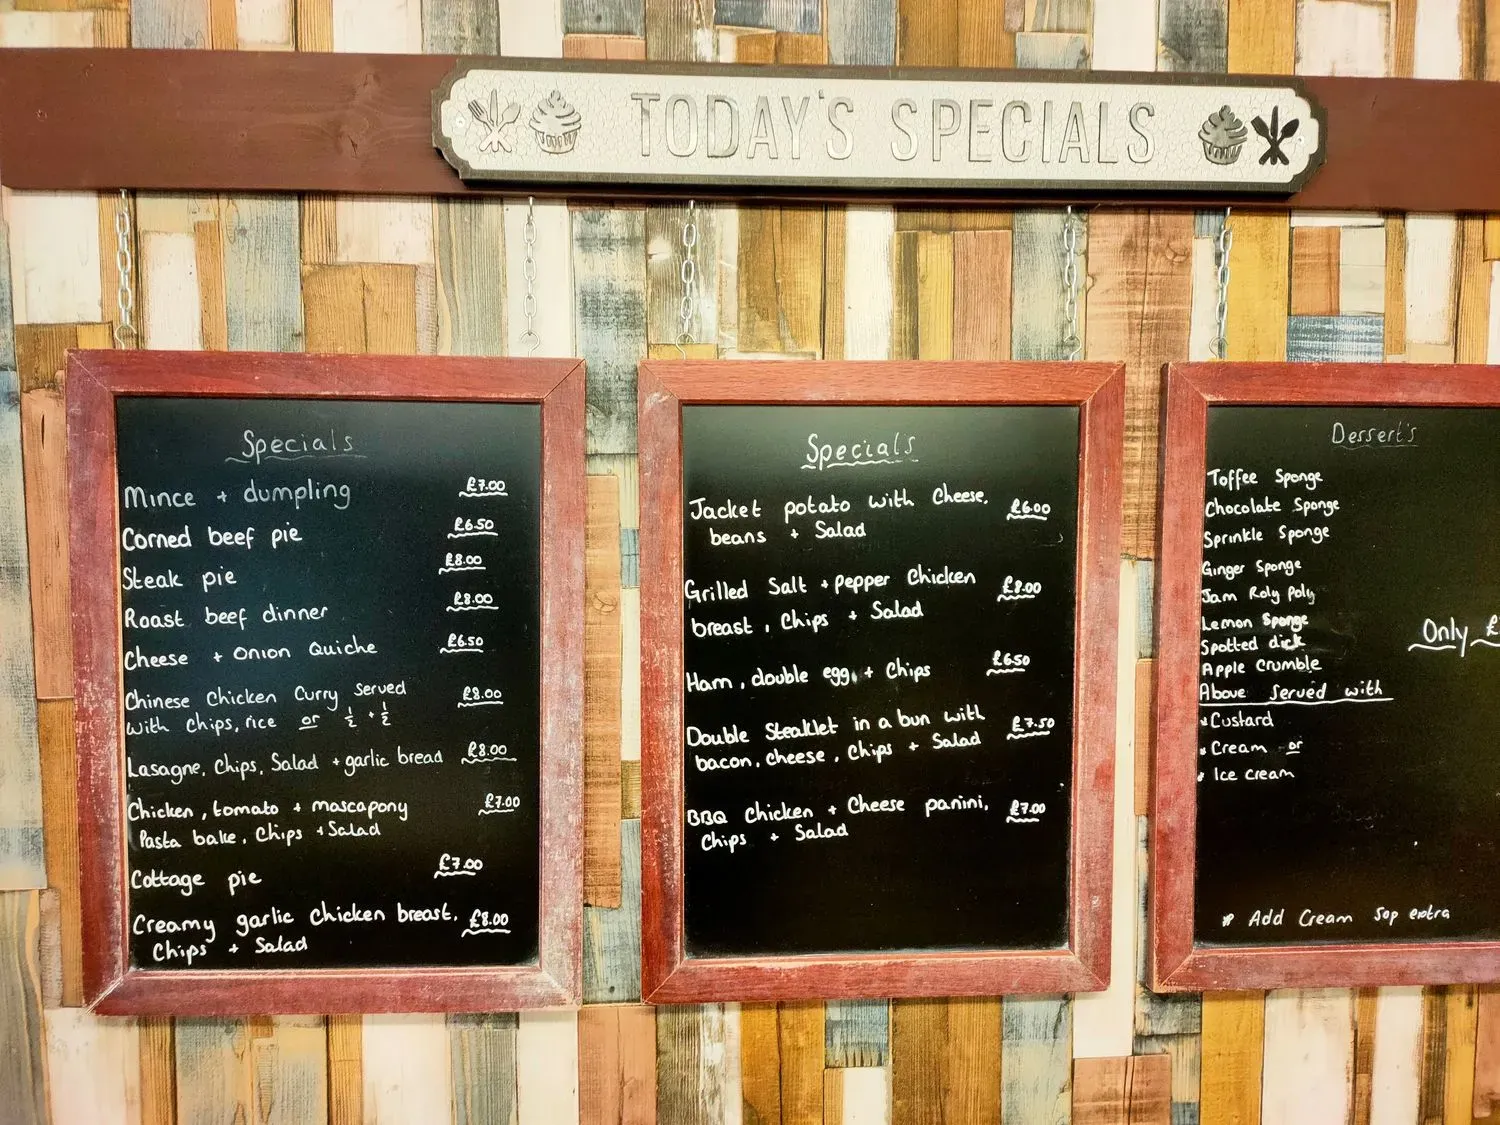 TODAY'S SPECIALS
Specials
Mince + dumpling £7.00
Corned beef pie £6.50
Steak pie £8.00
Roast beef dinner £8.00
Cheese + Onion Quiche £6.50
Chinese Chicken Curry Served £8.00
with Chips, rice or ½ + ½
Lasagne, Chips, Salad + garlic bread £8.00
Chicken, tomato + mascapony £7.00
Pasta bake, Chips + Salad
Cottage pie £7.00
Creamy garlic Chicken breast, £8.00
Chips + Salad
Specials
Jacket potato with Cheese, £6.00
beans + Salad
Grilled Salt + pepper Chicken £8.00
breast, Chips + Salad
Ham, double egg, + Chips £6.50
Double Steaklet in a bun with £7.50
bacon, cheese, Chips + Salad
BBQ Chicken + Cheese panini, £7.00
Chips + Salad
Dessert's
Toffee Sponge
Chocolate Sponge
Sprinkle Sponge
Ginger Sponge
Jam Roly Poly
Lemon Sponge
Only £
Spotted dick
Apple Crumble
Above Served with
* Custard
* Cream or
* Ice cream
* Add Cream 50p extra